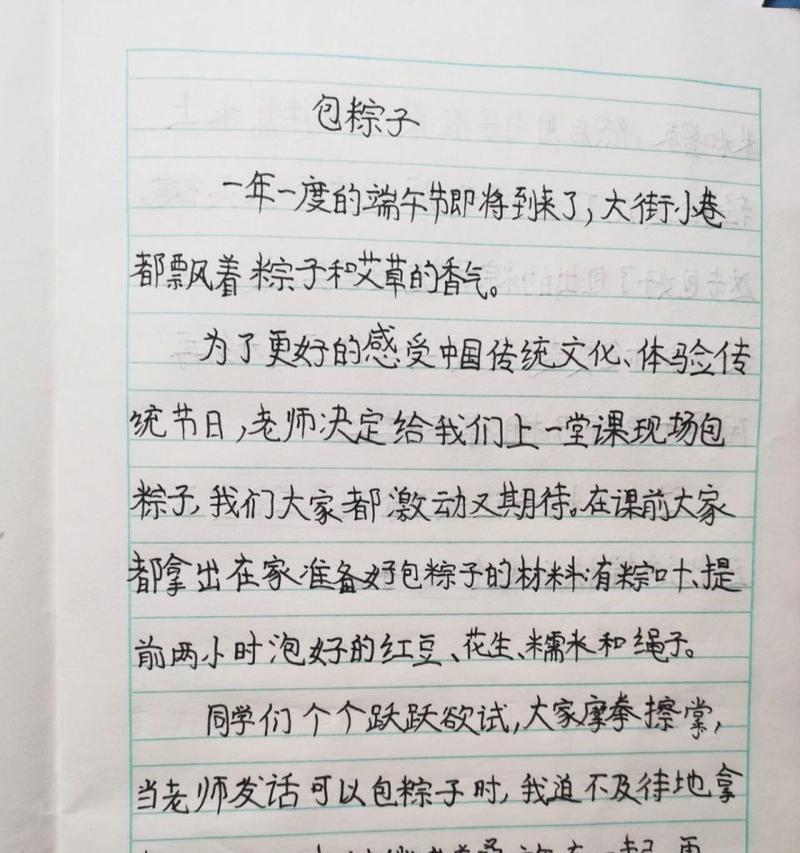 包粽子
一年一度的端午节即将到来了,大街小巷
都飘着粽子和艾草的香气。
为了更好的感受中国传统文化、体验传
统节日,老师决定给我们上一堂课现场包
粽子,我们大家都激动又期待。在课前大家
都拿出在家准备好包粽子的材料:有粽叶、提
前两小时泡好的红豆、花生、糯米和绳子。
同学们个个跃跃欲试,大家摩拳擦掌,
当老师发话可以包粽子时,我迫不及待地拿